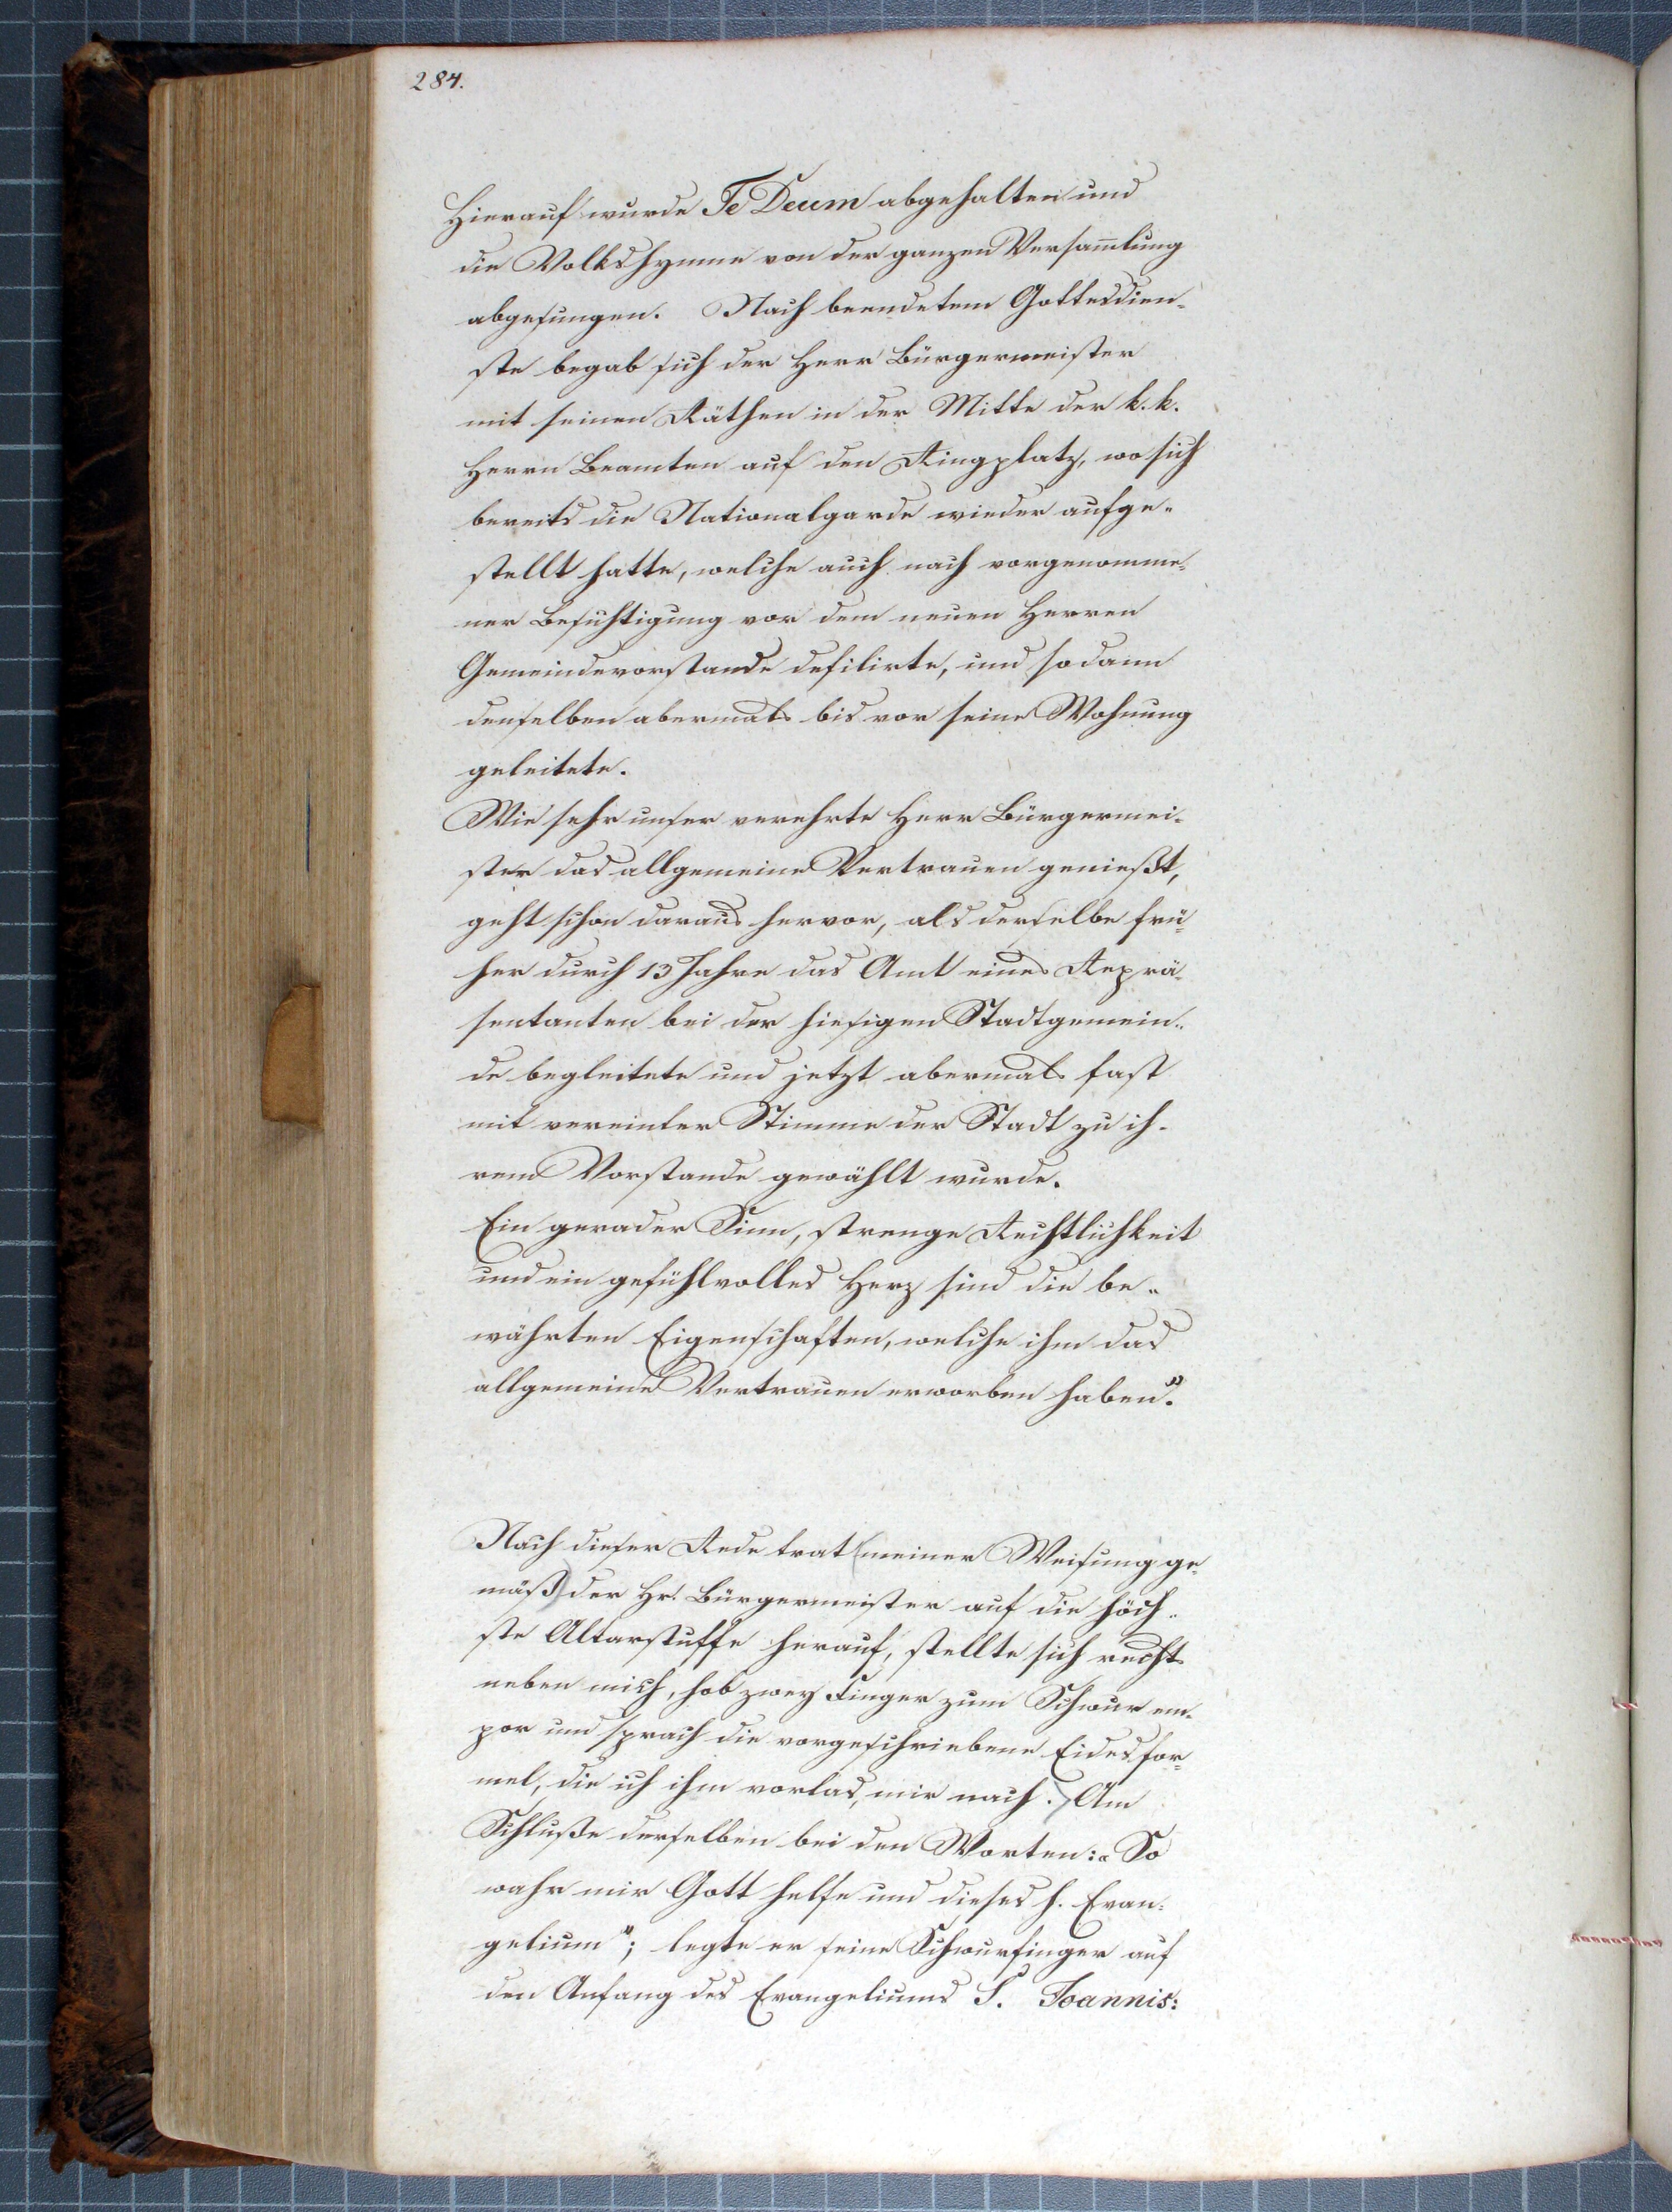 284.
Hierauf wurde Te Deum abgehalten und
die Volkshymne von der ganzen Versam̅lung
abgesungen. Nach beendetem Gottesdien-
ste begab sich der Herr Bürgermeister
mit seinen Räthen in der Mitte der k. k.
Herrn Beamten auf den Ringplatz, wo sich
bereits die Nationalgarde wieder aufge-
stellt hatte, welche auch nach vorgenomme-
ner Besichtigung vor dem neuen Herren
Gemeindevorstande defilirte, und sodann
denselben abermals bis vor seine Wohnung
geleitete.
Wie sehr unser verehrte Herr Bürgermei-
ster das allgemeine Vertrauen genießt,
geht schon daraus hervor, als derselbe frü-
her durch 13 Jahre das Amt eines Reprä-
sentanten bei der hiesigen Stadtgemein-
de begleitete und jetzt abermals fast
mit vereinter Stimme der Stadt zu ih-
rem Vorstande gewählt wurde.
Ein gerader Sinn, strenge Rechtlichkeit
und ein gefühlvolles Herz sind die be-
währten Eigenschaften, welche ihm das
allgemeine Vertrauen erworben haben".
Nach dieser Rede trat (meiner Weisung ge-
mäß) der Hr. Bürgermeister auf die höch-
ste Altarstuffe herauf, stellte sich rechts
neben mich, hob zwey Finger zum Schwur em-
por und sprach die vorgeschriebene Eidesfor-
mel, die ich ihm vorlas, mir nach. Am
Schluße derselben bei den Worten: „So
wahr mir Gott helfe und dieses h. Evan-
gelium"; legte er seine Schwurfinger auf
den Anfang des Evangeliums S. Joannis: